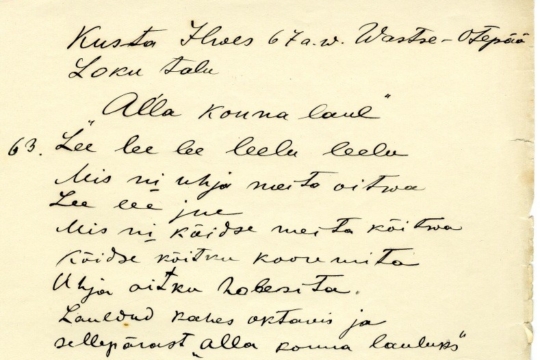 Kusta Ilwes 67 a.w. Wastse-Otepää
Loku talu
"Alla konna laul"
63. Lee lee lee leelu leelu
Mis ni uhja meita oitwa
Lee lee jne
Mis ni käidse meita köitwa
Köidse köitku
Uhja oitku hobesita.
Lauldud kahes oktavis ja
sellepärast "alla konna lauluks"